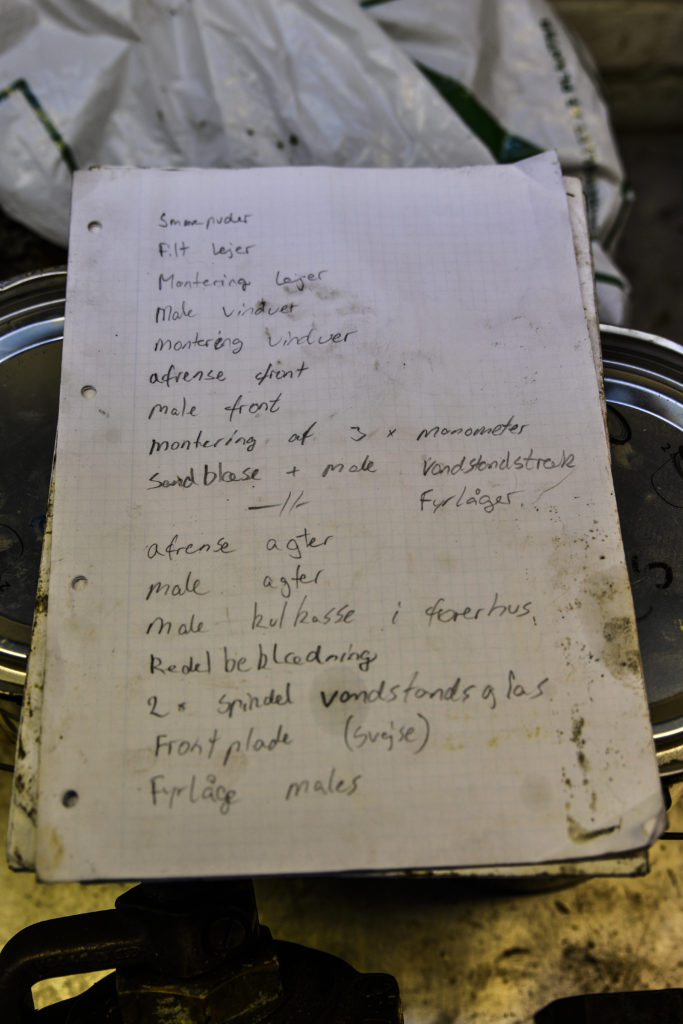 Smørepuder
Filt lejer
Montering lejer
Male vinduer
montering vinduer
afrense front
male front
montering af 3 x manometer
Sandblæse + male vandstandstræk
—//— Fyrlåger.
afrense agter
male agter
male kulkasse i førerhus,
Kedelbeklædning
2 x spindel vandstandsglas
Frontplade (svejse)
Fyrlåge males